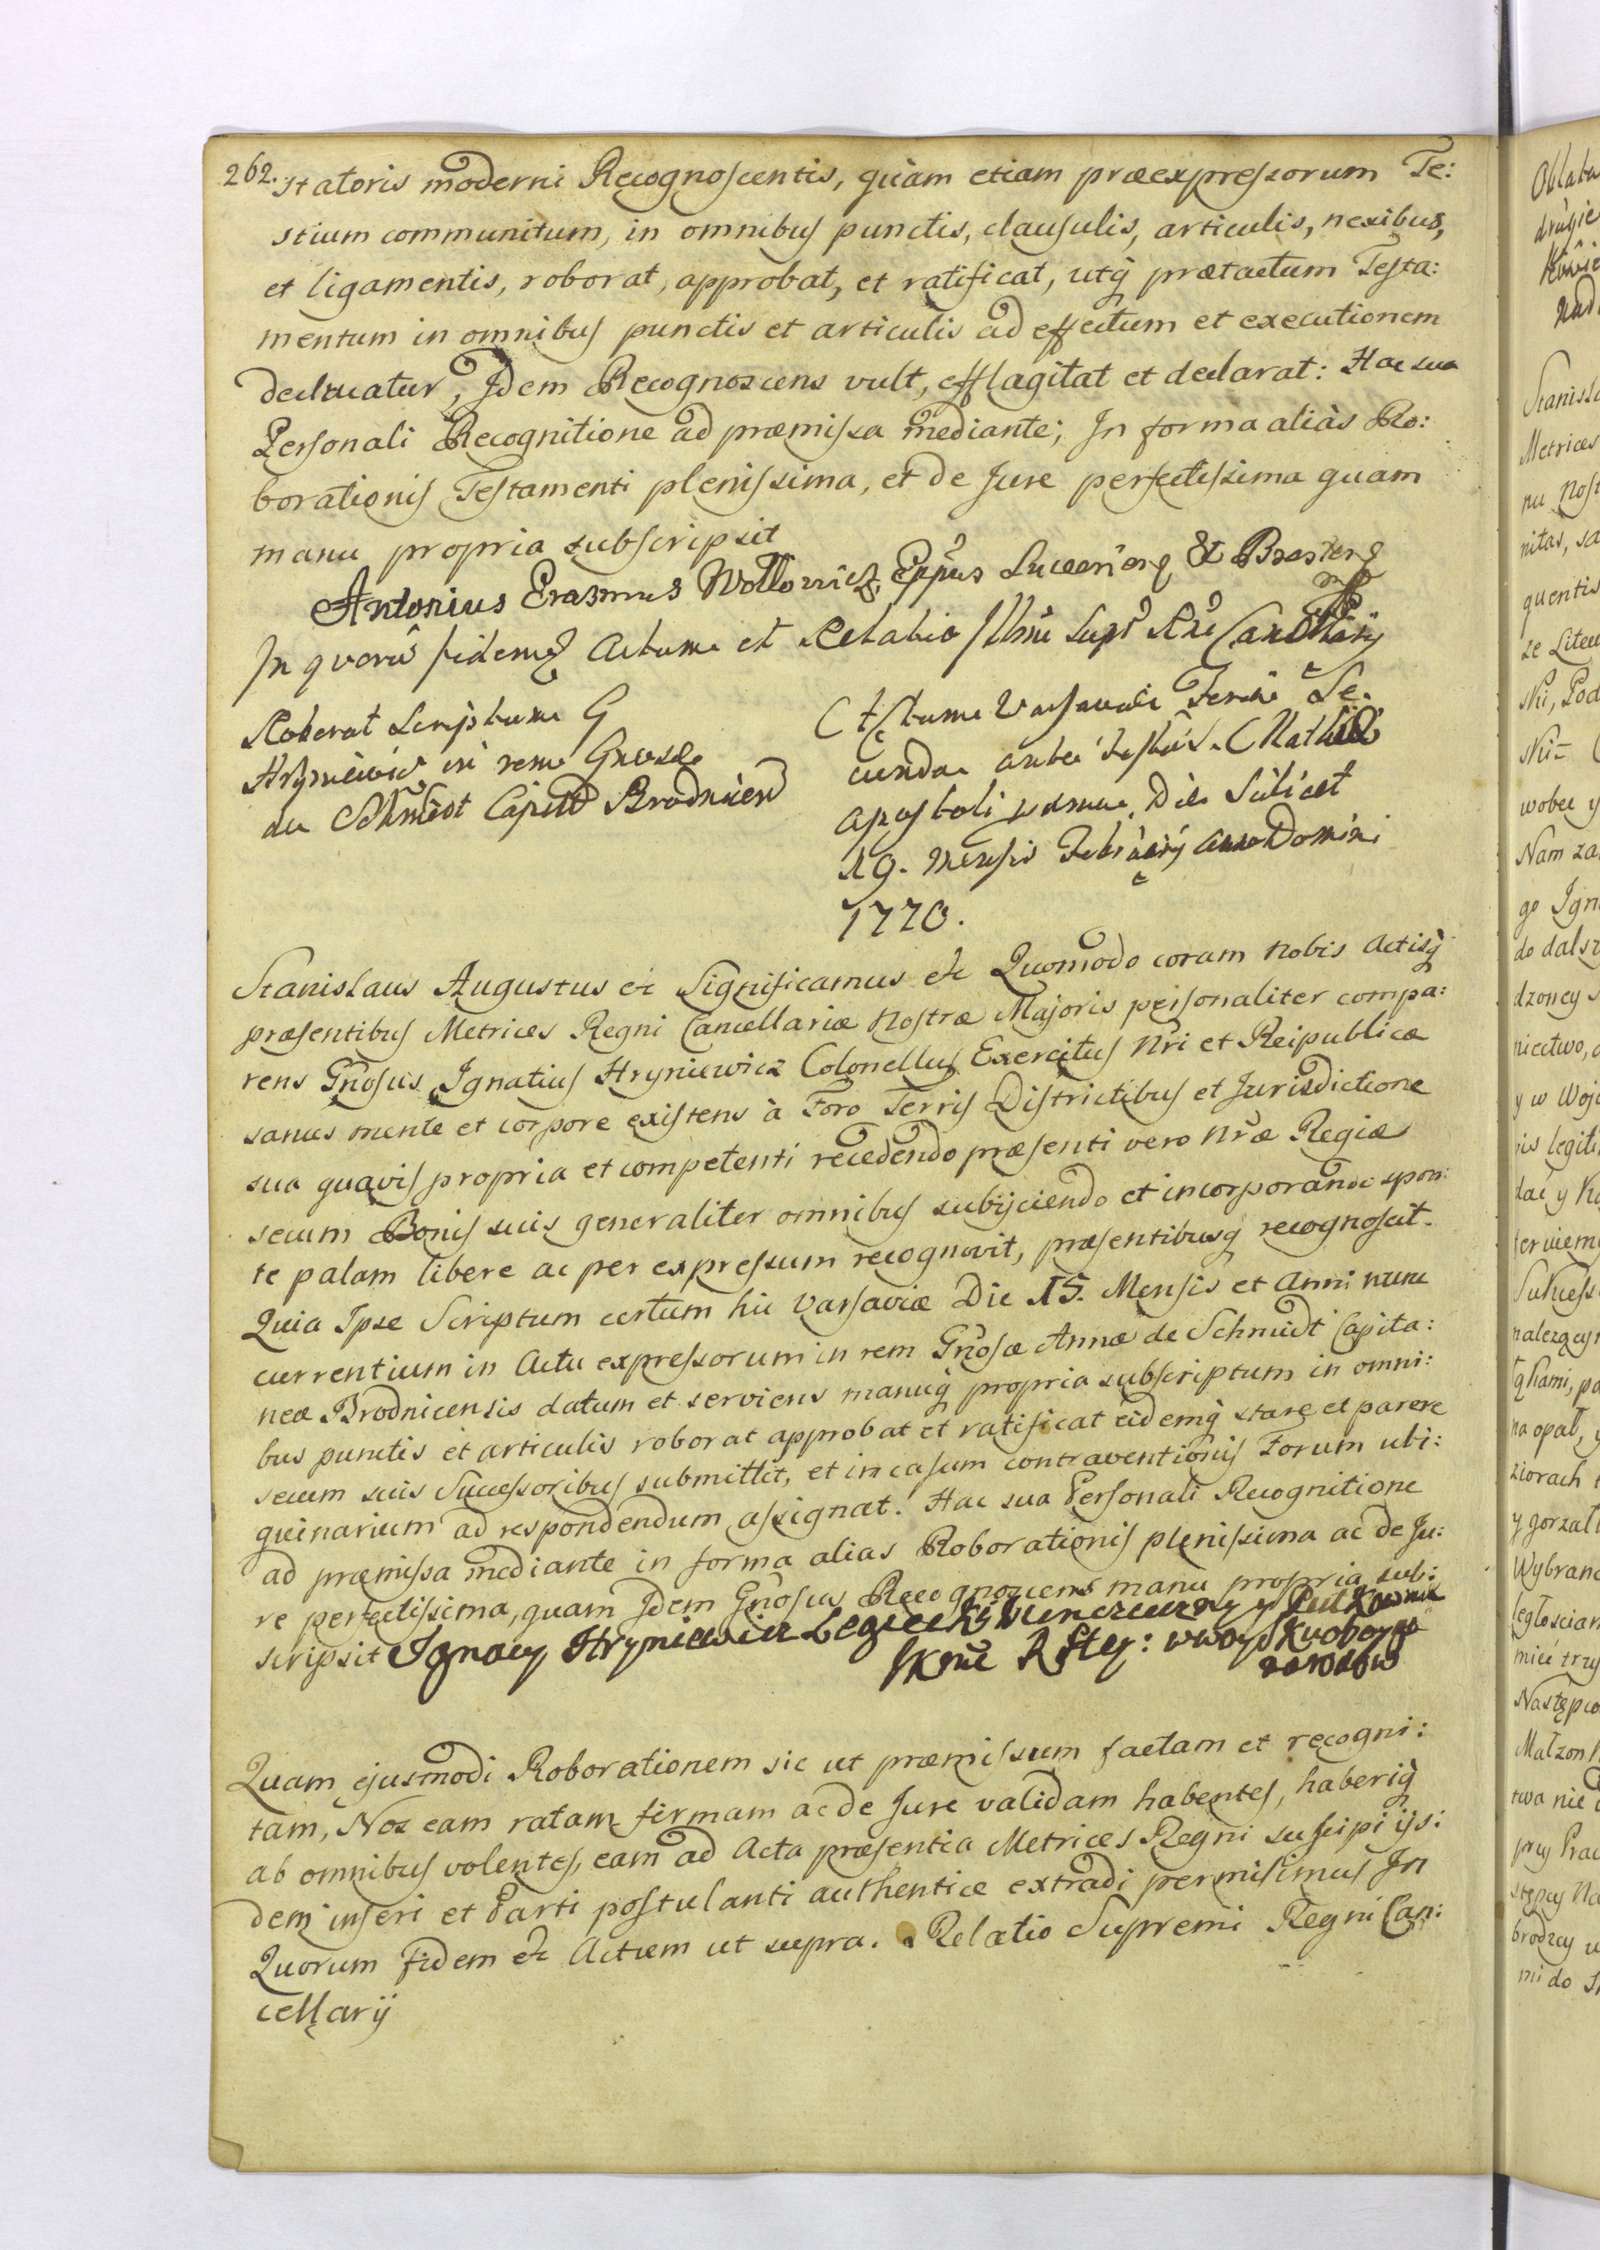 262.
statoris moderni Recognoscentis, quàm etiam præexpressorum Te:
stium communitum, in omnibus punctis, clausulis, articulis, nexibus,
et ligamentis, roborat, approbat, et ratificat, utq̃ prætactum Testa:
mentum in omnibus punctis et articulis ad effectum et executionem
deducatur, Idem Recognoscens vult, efflagitat et declarat: Hac sua
Personali Recognitione ad præmissa mediante; In forma aliàs Ro:
borationis Testamenti plenissima, et de Jure perfectissima quam
manu propria subscripsit
Antonius Erasmus Wołłowicz Eppus Luceorien et Bresten
mp
In quorũ fidem Actum et Relatio Illmi Supr Rni Cancellarij
Roborat Scriptum G
Hryniewicz in rem Gnosæ
de Schmidt Capit Brodnicen
Actum Varsaviæ Feria Se
cunda ante festũ S. Mathiæ
Apostoli Die Scilicet
19. Mensis Februarij Anno Domini
1770.
Stanislaus Augustus etc Significamus etc Quomodo coram Nobis Actisq̃
præsentibus Metrices Regni Cancellariæ Nostræ Majoris personaliter compa:
rens Gnosus Ignatius Hryniewicz Colonellus Exercitus Nri et Reipublicæ
sanus mente et corpore existens à Foro Terris Districtibus et Jurisdictione
sua quavis propria et competenti recedendo præsenti vero Nræ Regiæ
secum Bonis suis generaliter omnibus subijciendo et incorporando spon:
te palam libere ac per expressum recognovit, præsentibusq̃ recognoscit.
Quia Ipse Scriptum certum hic Varsaviæ Die 15. Mensis et Anni nunc
currentium in Actu expressorum in rem Gnosæ Annæ de Schmidt Capita:
neæ Brodnicensis datum et serviens manuq̃ propria subscriptum in omni:
bus punctis et articulis roborat approbat et ratificat eidemq̃ stare et parere
secum suis Successoribus submittit, et in casum contraventionis Forum ubi:
quinarium ad respondendum assignat. Hac sua Personali Recognitione
ad præmissa mediante in forma alias Roborationis plenissima ac de Ju:
re perfectissima, quam Idem Gnosus Recognoscens manu propria sub:
scripsit Ignacy Hryniewicz y Pułkownik
Quam ejusmodi Roborationem sic ut præmissum factam et recogni:
tam, Nos eam ratam firmam ac de Jure validam habentes, haberiq̃
ab omnibus volentes, eam ad Acta præsentia Metrices Regni suscipi ijs:
dem inseri et Parti postulanti authentice extradi permisimus In
Quorum fidem etc Actum ut supra. Relatio Supremi Regni Can:
cellarij